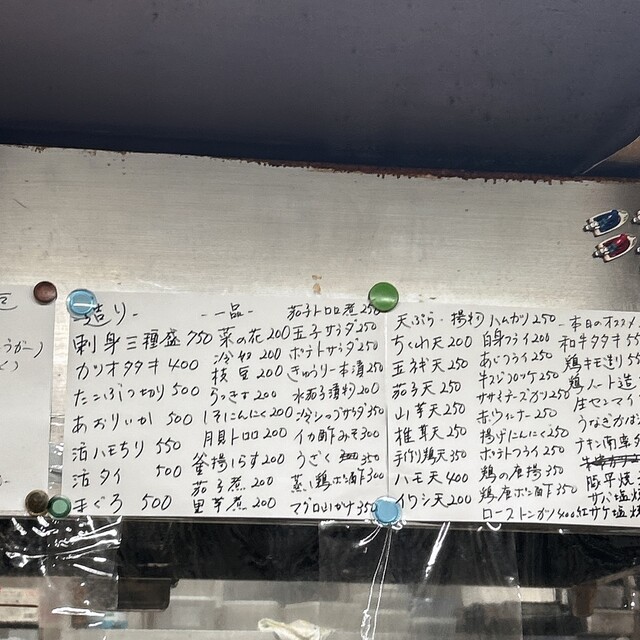 造り-
刺身三種盛 750
カツオタタキ 400
たこぶつ切り 500
あおりいか 500
活ハモちり 550
活タイ 500
まぐろ 500
-一品-
菜の花 200
冷奴 200
枝豆 200
らっきょ 200
しそにんにく 200
月見トロロ 200
釜揚しらす 200
茄子煮 200
里芋煮 200
茄子トロロ煮 250
玉子サラダ 250
ポテトサラダ 250
きゅうり一本漬 250
水茄子漬物 200
冷シャブサラダ 350
イカ酢みそ 300
うざく 350
蒸し鶏ポン酢 300
マグロ山かけ 350
天ぷら-揚物
ちくわ天 200
玉ネギ天 250
茄子天 250
山芋天 250
椎茸天 250
手作り鶏天 350
ハモ天 400
イワシ天 200
ハムカツ 250
白身フライ 200
あじフライ 250
牛スジコロッケ 250
ササミチーズカツ 250
赤ウインナー 250
揚げにんにく 250
ポテトフライ 250
鶏の唐揚 350
鶏唐ポン酢 350
ローストンカツ 400
-本日のオススメ
和牛タタキ 55
鶏キモ造り 55
鶏ハート造
生センマイ
うなぎかば
チキン南蛮
豚平焼
サバ塩焼
紅サケ塩焼